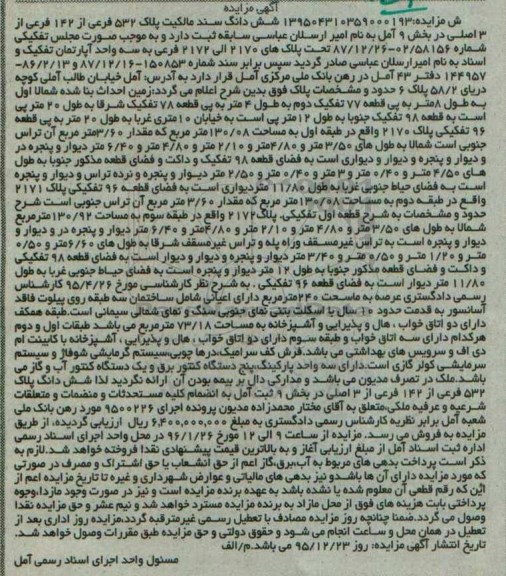 آگهی مزایده
ش مزایده:139504310359000193 شش دانگ سند مالکیت پلاک 532 فرعی از 142 فرعی از
3 اصلی در بخش 9 آمل به نام امیر ارسلان عباسی سابقه ثبت دارد و به موجب صورت مجلس تفکیکی
شماره 02/58156-87/12/26 تحت پلاک های 2170 الی 2172 فرعی به سه واحد آپارتمان تفکیک و
اسناد به نام امیرارسلان عباسی صادر گردید سپس برابر سند شماره 150853-87/12/16 و 86/2/13-
144957 دفتر 43 آمل در رهن بانک ملی مرکزی آمل قرار دارد به آدرس: آمل خیابان طالب آملی کوچه
دریای 58/2 پلاک 6 حدود و مشخصات پلاک فوق بدین شرح اعلام می گردد:زمین احداث بنا شده شمالا اول
به طول 8متر به پی قطعه 77 تفکیک دوم به طول 4 متر به پی قطعه 78 تفکیک شرقا به طول 20 متر پی
است به قطعه 98 تفکیک جنوبا به طول 12 متر پی است به خیابان 10متری غربا به طول 20 متر به پی قطعه
96 تفکیکی پلاک 2170 واقع در طبقه اول به مساحت 130/08 متر مربع که مقدار 3/60متر مربع آن تراس
جنوبی است شمالا به طول های 3/50 متر و 4/80متر و 2/10 متر و 4/80 متر و 6/40 متر دیوار و پنجره در
و دیوار و پنجره و دیوار و دیواری است به فضای قطعه 98 تفکیک و داکت و فضای قطعه مذکور جنوبا به طول
های 4/50 متر و 0/40 متر و 3 متر و 0/40 متر و 2/50 متر دیوار و پنجره و نرده تراس و دیوار و پنجره
است به فضای حیاط جنوبی غربا به طول 11/80 متردیواری است به فضای قطعه 96 تفکیکی پلاک 2171
واقع در طبقه دوم به مساحت130/08متر مربع که مقدار 3/60 متر مربع آن تراس جنوبی است شرح
حدود و مشخصات به شرح قطعه اول تفکیکی. پلاک2172 واقع در طبقه سوم به مساحت 130/92مترمربع
شمالا به طول های 3/50 متر و 4/80 متر و 2/10 متر و 4/80متر و 6/40 متر دیوار و پنجره در و دیوار و
دیوار و پنجره است به تراس غیرمسقف وراه پله و تراس غیرمسقف شرقا به طول های 6/60متر و 0/50
متر و 1/20 متر و 0/50 متر و 3/40 متر دیوار و پنجره و دیوار و دیوار است به فضای قطعه 98 تفکیکی
و داکت و فضای قطعه مذکور جنوبا به طول 12 متر دیوار و پنجره است به فضای حیاط جنوبی غربا به طول
11/80 متر دیوار است به فضای قطعه 96 تفکیکی . به شرح نظر کارشناسی مورخ 95/4/26 کارشناس
رسمی دادگستری عرصه به ماسحت 240مترمربع دارای اعیانی شامل ساختمان سه طبقه روی پیلوت فاقد
آسانسور به قدمت حدود 10 سال با اسکلت بتنی نمای جنوبی سنگ و نمای شمالی سیمانی است.طبقه همکف
دارای دو اتاق خواب ، هال و پذیرایی و آشپزخانه به مساحت 73/18 مترمربع می باشد طبقات اول و دوم
هرکدام دارای سه اتاق خواب و طبقه سوم دارای دو اتاق خواب ، هال و پذیرایی ، آشپزخانه با کابینت ام
دی اف و سرویس های بهداشتی می باشد.فرش کف سرامیک،درها چوبی،سیستم گرمایشی شوفاژ و سیستم
سرمایشی کولر گازی است.دارای سه واحد پارکینگ،پنج دستگاه کنتور برق و یک دستگاه کنتور آب و گاز می
باشد.ملک در تصرف مدیون می باشد و مدارکی دال بر بیمه بودن آن ارائه نگردید لذا شش دانگ پلاک
532 فرعی از 142 فرعی از 3 اصلی در بخش 9 ثبت آمل به انضمام کلیه مستحدثات و منضمات و متعلقات
شرعیه و عرفیه ملکی،متعلق به آقای مختار محمدزاده مدیون پرونده اجرای 9500226 مورد رهن بانک ملی
شعبه آمل برابر نظریه کارشناس رسمی دادگستری به مبلغ 6,400,000,000 ریال ارزیابی گردیده، از طریق
مزایده به فروش می رسد. مزایده از ساعت 9 الی 12 مورخ 96/1/26 در محل واحد اجرای اسناد رسمی
اداره ثبت اسناد آمل از مبلغ ارزیابی آغاز و به بالاترین قیمت پیشنهادی نقدا فروخته خواهد شد.لازم به
ذکر است پرداخت بدهی های مربوط به آب،برق،گاز اعم از حق انشعاب یا حق اشتراک و مصرف در صورتی
که مورد مزایده دارای آن ها باشدو نیز بدهی های مالیاتی و عوارض شهرداری و غیره تا تاریخ مزایده اعم از
این که رقم قطعی آن معلوم شده یا نشده باشد به عهده برنده مزایده است و نیز در صورت وجود مازاد،وجوه
پرداختی بابت هزینه های فوق از محل مازاد به برنده مزایده مسترد خواهد شد و نیم عشر و حق مزایده نقدا
وصول می گردد.ضمنا چنانچه روز مزایده مصادف با تعطیل رسمی غیرمترقبه گردد،مزایده روز اداری بعد از
تعطیل در همان محل و ساعت انجام می شود و حقوق دولتی و حق مزایده طبق مقررات وصول خواهد شد.
تاریخ انتشار آگهی مزایده: روز 95/12/23 می باشد.م/الف
مسئول واحد اجرای اسناد رسمی آمل